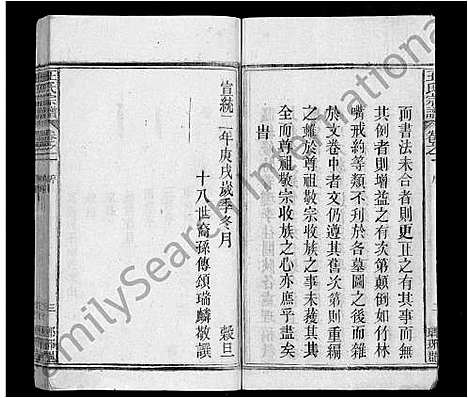 而書法未合者則更正之有其事而無
其例者則增益之有次第顛倒如竹林
嘴戒約等類不刋於各墓圖之後而雜
於文卷中者文仍遵其舊次第則重編
之雖於尊祖敬宗收族之事未獲其具
全而尊祖敬宗收族之心亦庶乎盡矣
旹
宣統二年庚戌歲季冬月 穀旦
十八世裔孫傳頌瑞麟敬譔
王氏宗譜 卷之一 序 三
FamilySearch International